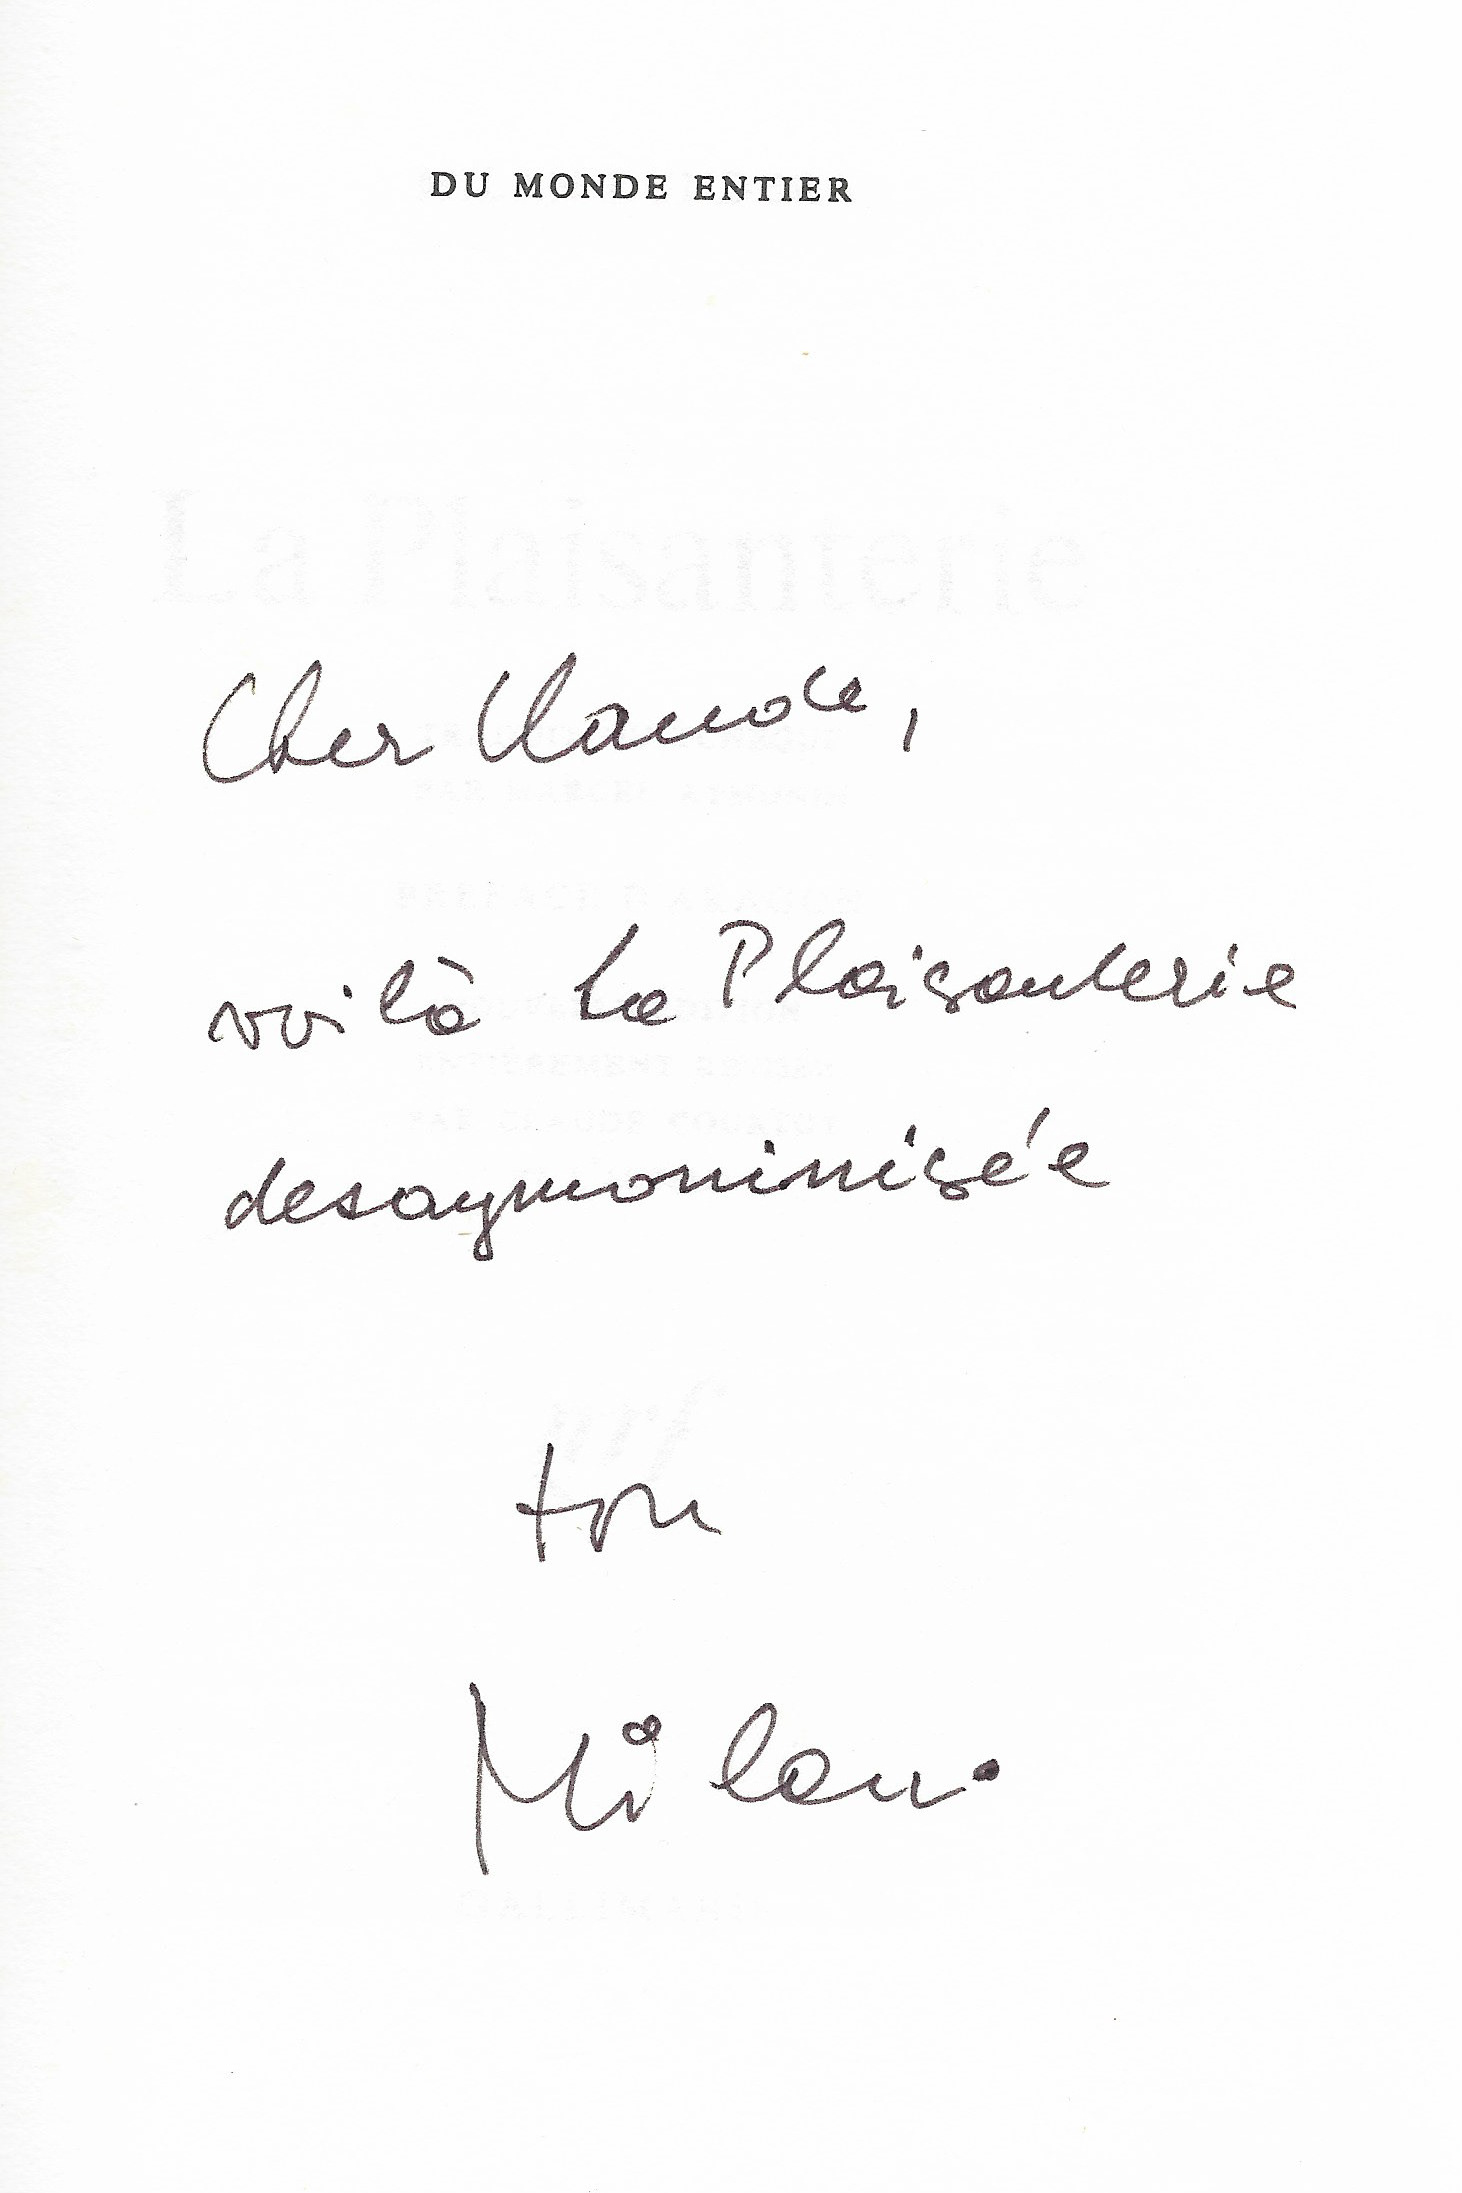 DU MONDE ENTIER
La Plaisanterie
Cher Claude,
voilà La Plaisanterie
desaymoninisée
ton
Milan.